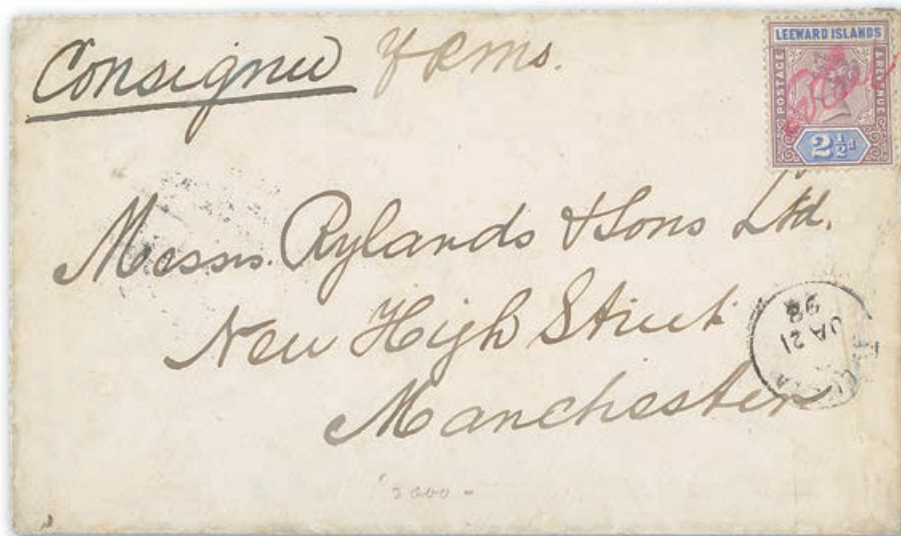 Consignee
LEEWARD ISLANDS
POSTAGE & REVENUE
2½d
Messrs. Rylands & Sons Ltd.
New High Street
Manchester
JA 21
98
2000 -